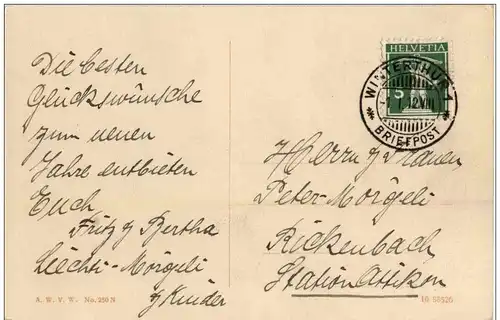 Die besten
Glückswünsche
zum neuen
Jahre entbieten
Euch
Fritz & Bertha
Liechti-Mörgeli
& Kinder
A. W. V. W. No. 250 N
HELVETIA
5
WINTERTHUR 1
12. VIII
BRIEFPOST
Herrn & Frauen
Peter-Mörgeli
Rickenbach
Station Attikon